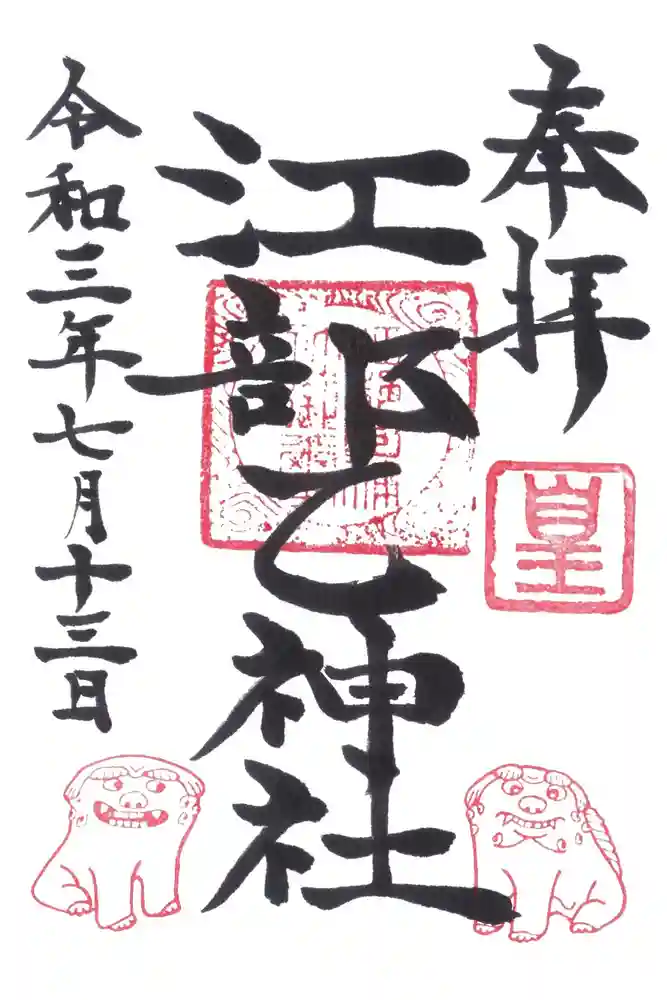 奉拝
皇
江部乙神社
令和三年七月十三日